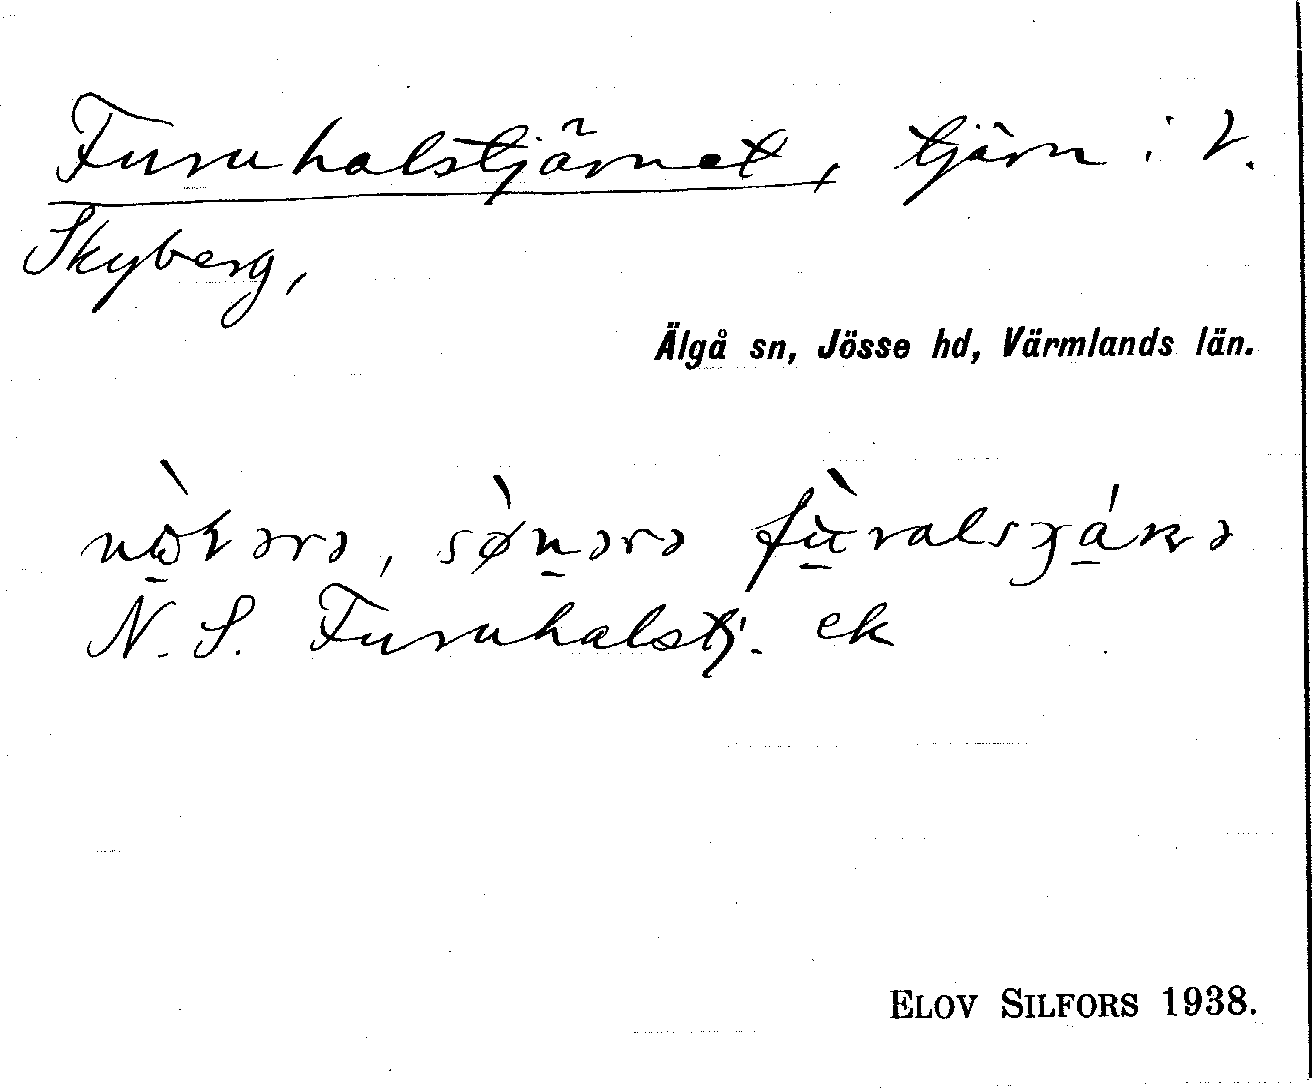 Furuhalstjärnet, tjärn i V.
Skyberg,
Älgå sn, Jösse hd, Värmlands län.
N. S. Furuhalstj. ek
ELOV SILFORS 1938.